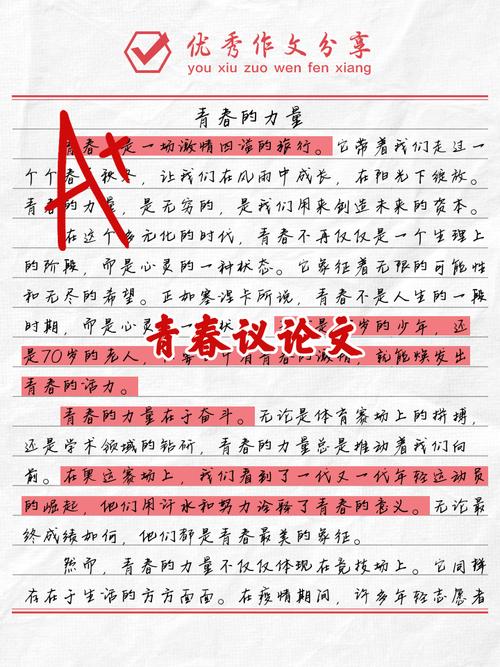 优秀作文分享
you xiu zuo wen fen xiang
A+
青春的力量
青春 是一场激情四溢的旅行。它带着我们走过一
个个春 秋冬，让我们在风雨中成长，在阳光下绽放。
青春的力量，是无穷的，是我们用来创造未来的资本。
在这个多元化的时代，青春不再仅仅是一个生理上
的阶段，而是心灵的一种状态。它象征着无限的可能性
和无尽的希望。正如塞涅卡所说，青春不是人生的一段
时期，而是心灵的一 状 是 岁的少年，还
青春议论文
是70岁的老人， 有青春的激情，就能焕发出
青春的活力。
青春的力量在于奋斗。无论是体育赛场上的拼搏，
还是学术领域的钻研，青春的力量总是推动着我们向
前。在奥运赛场上，我们看到了一代又一代年轻运动员
的崛起，他们用汗水和努力诠释了青春的意义。无论最
终成绩如何，他们都是青春最美的象征。
然而，青春的力量不仅仅体现在竞技场上。它同样
存在于生活的方方面面。在疫情期间，许多年轻志愿者